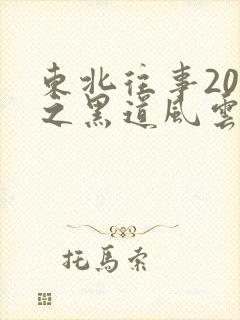 東北往事20
之黑道風雲
托馬索